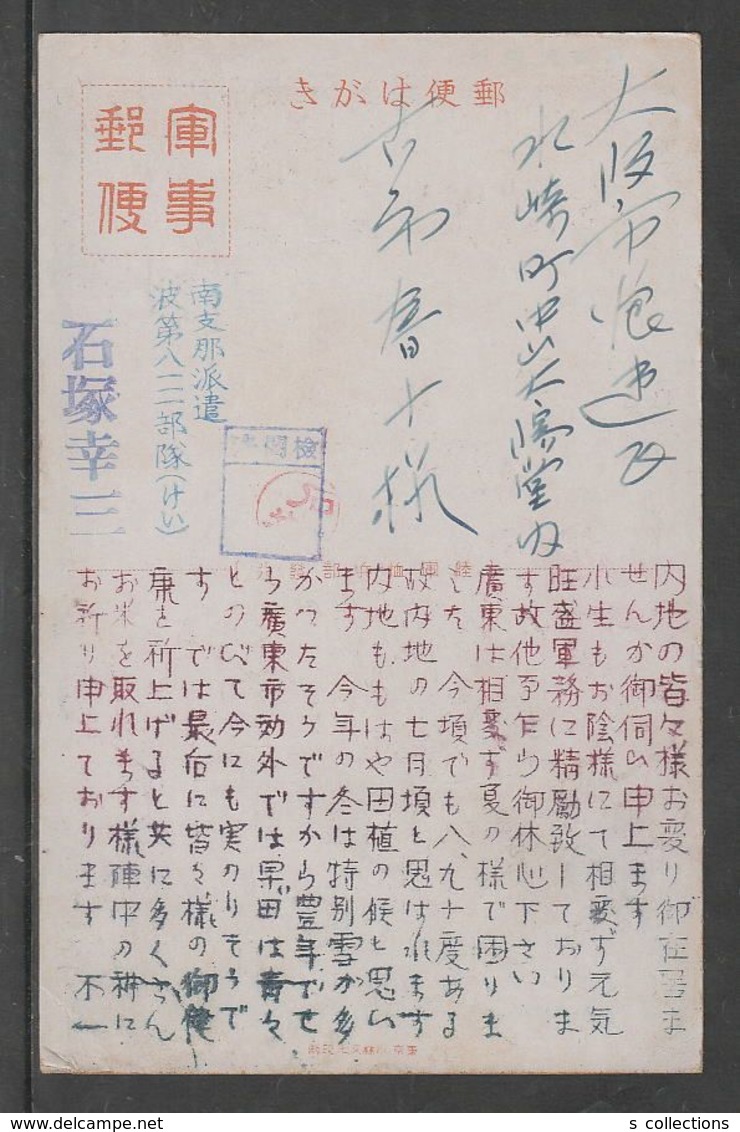 郵便はがき
軍事
郵便
大阪市浪速区
水崎町中山大陽堂内
様
南支那派遣
波第八一一部隊(けい)
石塚幸三
検閲済
内地の皆々様お変り御在居ま
せんか御伺ひ申上ます
小生もお陰様にて相変ず元気
旺盛軍務に精励致しておりま
す故他事乍ら御休心下さい
廣東は相変す夏の様で困りま
した 今頃でも八、九十度ある
故内地の七月頃と思はれます
内地ももはや田植の候と思い
ます 今年の冬は特別雪が多
かつたそうですから豊年でせ
う廣東市効外では田は青々
とのびて今にも実のりそうで
す では最后に皆々様の御健
康を祈上げると共に多くさん
お米を取れます様陣中の神に
お祈り申上ております 不一
s collections